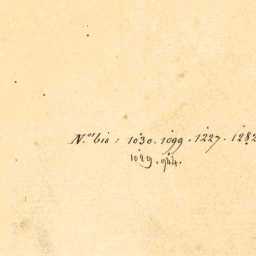 N.os bis : 1030 . 1099 . 1227 . 1282
1029 . 944 .